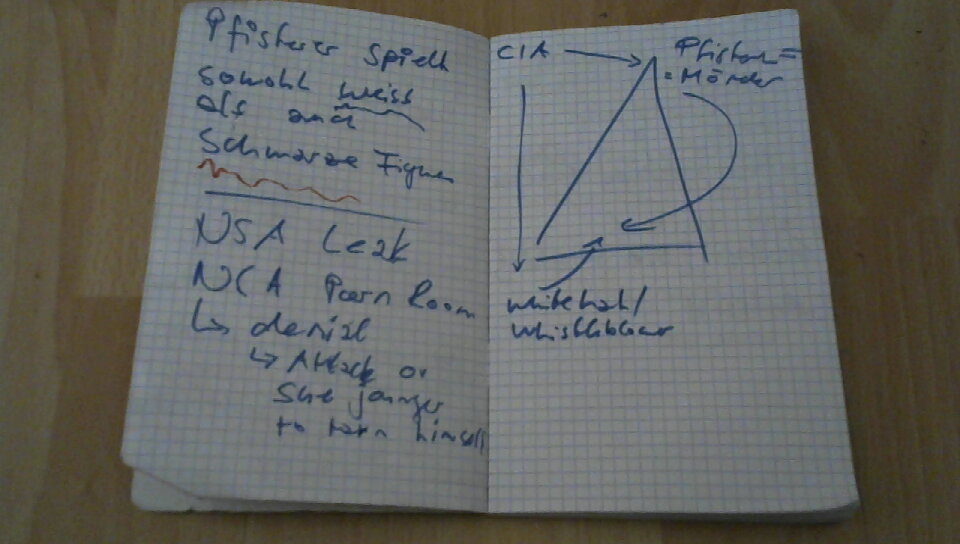 Pfisterer spielt
sowohl weiss
als auch
Schwarze Figuren
NSA Leak
NCA Porn Room
↳ denial
↳ Attack or
She younger
to turn himself
CIA
Pfisterer =
= Mörder
whistleblower